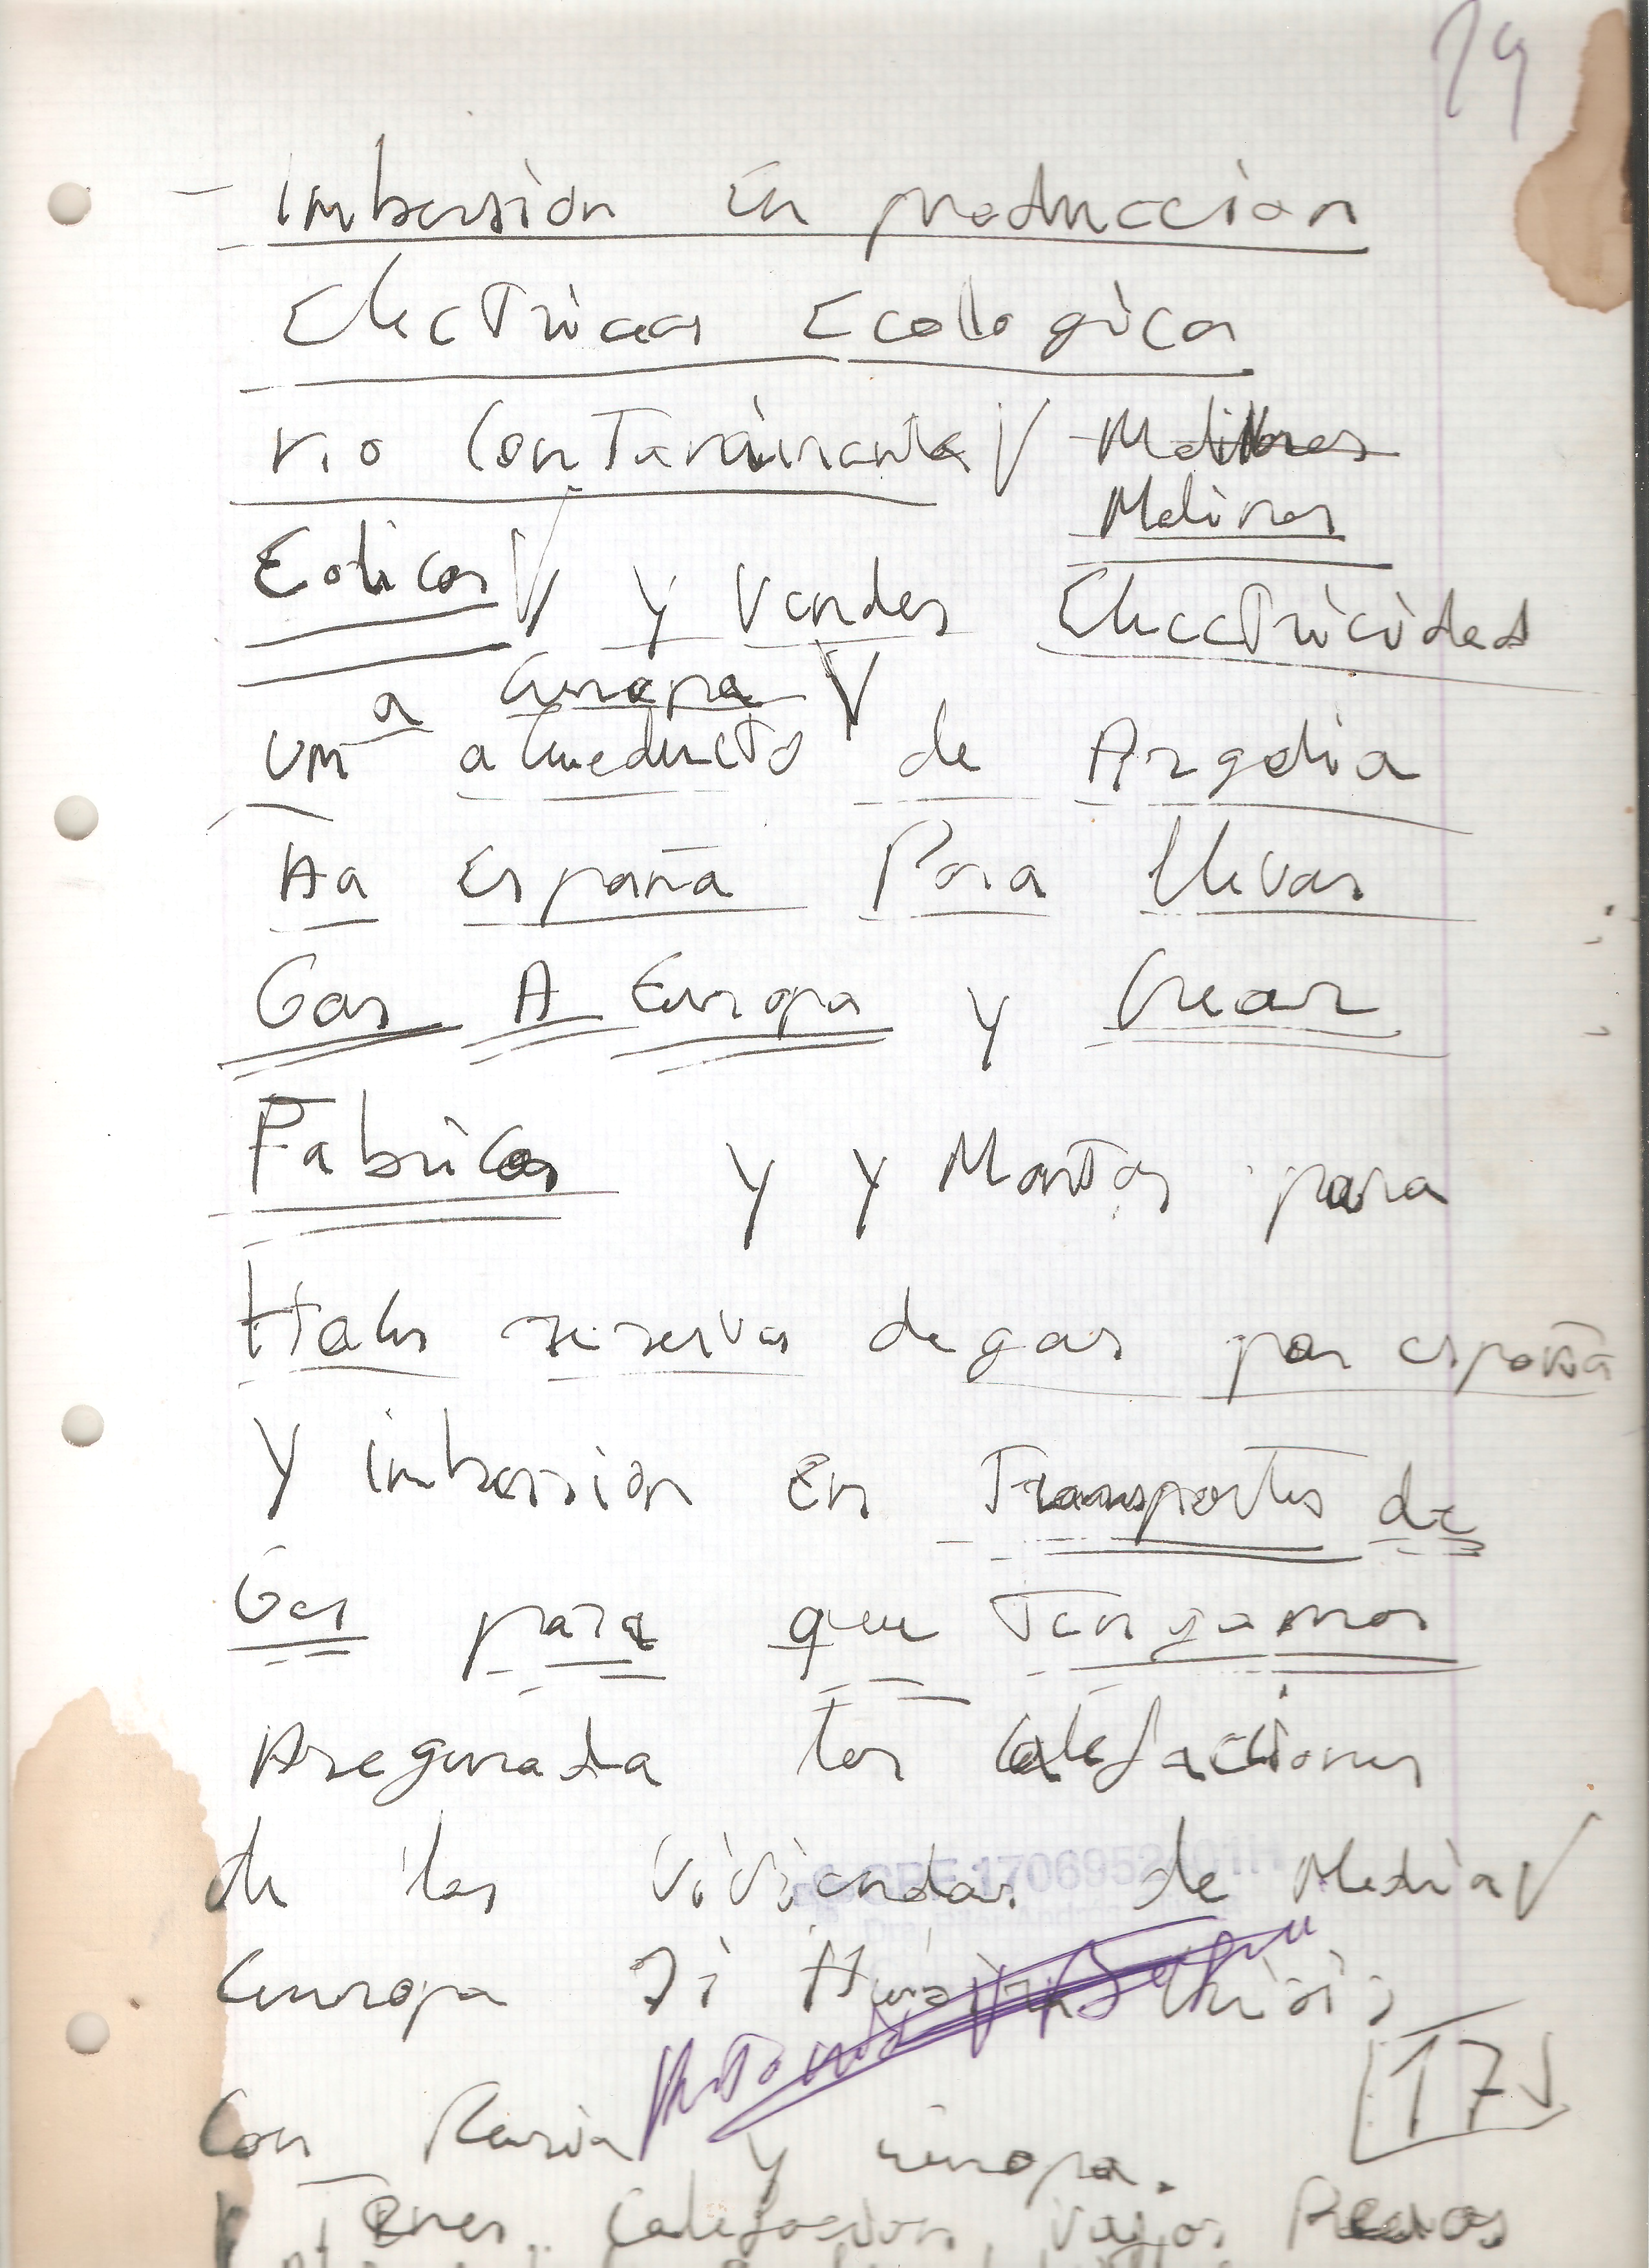 24
- imbersion En produccion
Electricas Ecologica
no Contaminante V
Molinos
Eolicos V y Vender Electricidad
a Europa V
un aCueducto de Argelia
Ha España Para llevar
Gas A Europa y Crear
Fabricas y y Montar para
Haler reservas de gas por españa
Y imbersion En Transportes de
Gas para que Tengamos
Asegurada las Calefaciones
de las Viviendas de Media V
Europa Si Crisis
17
Con Rusia y europa.
Tener Calefacion vajos